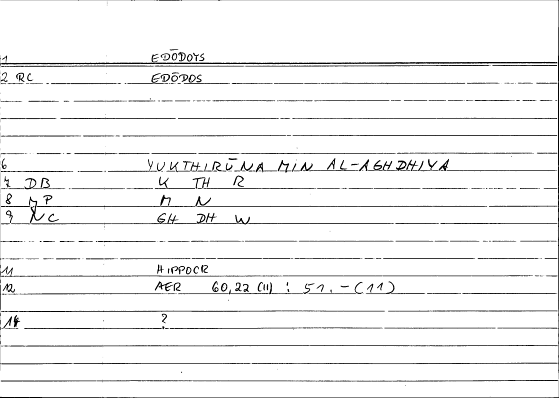 1 EDŌDOTS
2 RC EDŌDOS
6 YUKTHIRŪNA MIN AL-AGHDHIYA
7 DB K TH R
8 MP M N
9 NC GH DH W
11 HIPPOCR
12 AER 60,22 (11) : 51.-(11)
14 ?